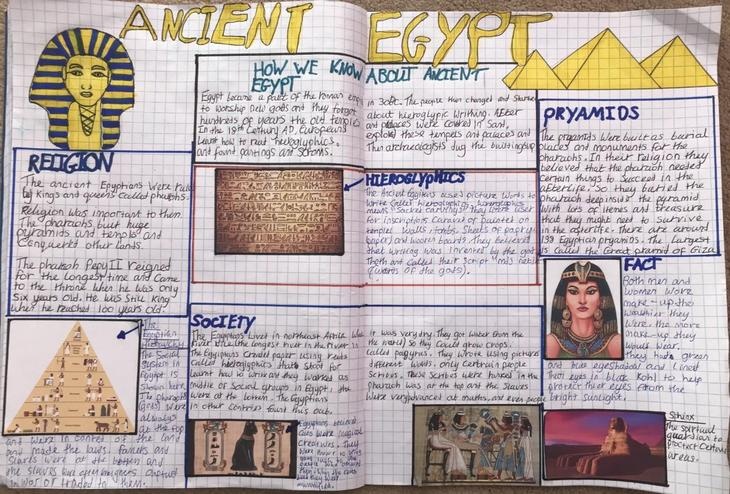 ANCIENT EGYPT
RELIGION
The ancient Egyptians were
by kings and queens called
Religion was important to them.
The pharaohs built huge
pyramids and temples and
conquered other lands.
The pharaoh Pepy II reigned
for the longest time and came
to the throne when he was only
six years old. He was still king
when he reached 100 years old.
The
Egyptian
The social
system in
Egypt is
shown here.
The pharaohs
were
always
at the top
and were in control of the land
and made the laws. Farmers and
slaves were at the bottom and
the slaves was often
in war or traded to them.
HOW WE KNOW ABOUT ANCIENT
EGYPT
Egypt became a part of the Roman
in 30BC. The people then changed and started
to worship new gods and they forgot
about hieroglyphic writing. After
hundreds of years the old temples
and palaces were covered in sand.
In the 18th century AD, Europeans
explored these temples and palaces and
learnt how to read hieroglyphics.
Then archaeologists dug the
and found paintings and
HIEROGLYPHICS
The Ancient used picture words to
write called hieroglyphics.
means 'sacred carvings'. They were used
for inscriptions carved or painted on
temples walls, tombs, sheets of papyrus
paper) and wooden boards. They believed
that writing was invented by the god
Thoth and called their script
(words of the gods).
SOCIETY
The Egyptians lived in northeast Africa.
it was very dry. They got water from the
River the longest river in the
world) so they could grow crops.
The Egyptians created paper using reeds
called papyrus. They wrote using pictures
called hieroglyphics that stood for
different words. Only certain people
learnt
scribes. They worked as
scribes were placed in the
middle of social groups in Egypt. The
pharaoh was at the top and the slaves
were at the bottom. The Egyptians
were very advanced at maths, and even people
in other countries found this out.
Egyptians believed
cats were magical
creatures. They
PRYAMIDS
The pyramids were built as burial
places and monuments for the
pharaohs. In their religion they
believed that the pharaoh needed
certain things to succeed in the
afterlife. So they buried the
pharaoh deep inside the pyramid
with lots of items and treasure
that they might need to survive
in the afterlife. There are around
138 Egyptian pryamids. The largest
is called the Great pyramid of Giza.
FACT
Both men and
women wore
make-up the
wealthier they
were the more
make-up they
would wear.
They had green
and blue eyeshadow and lined
their eyes in black kohl to help
protect their eyes from the
bright sunlight.
Sphinx
The spiritual
guardian to
protect certain
areas.